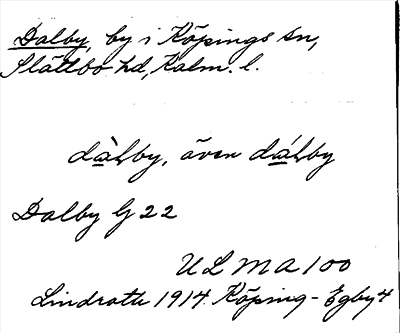 Dalby, by i Köpings sn,
Slättbo hd, Kalm. l.
dàlby, även dálby
Dalby G 22
ULMA 100
Lindroth 1914. Köping - Egby 4